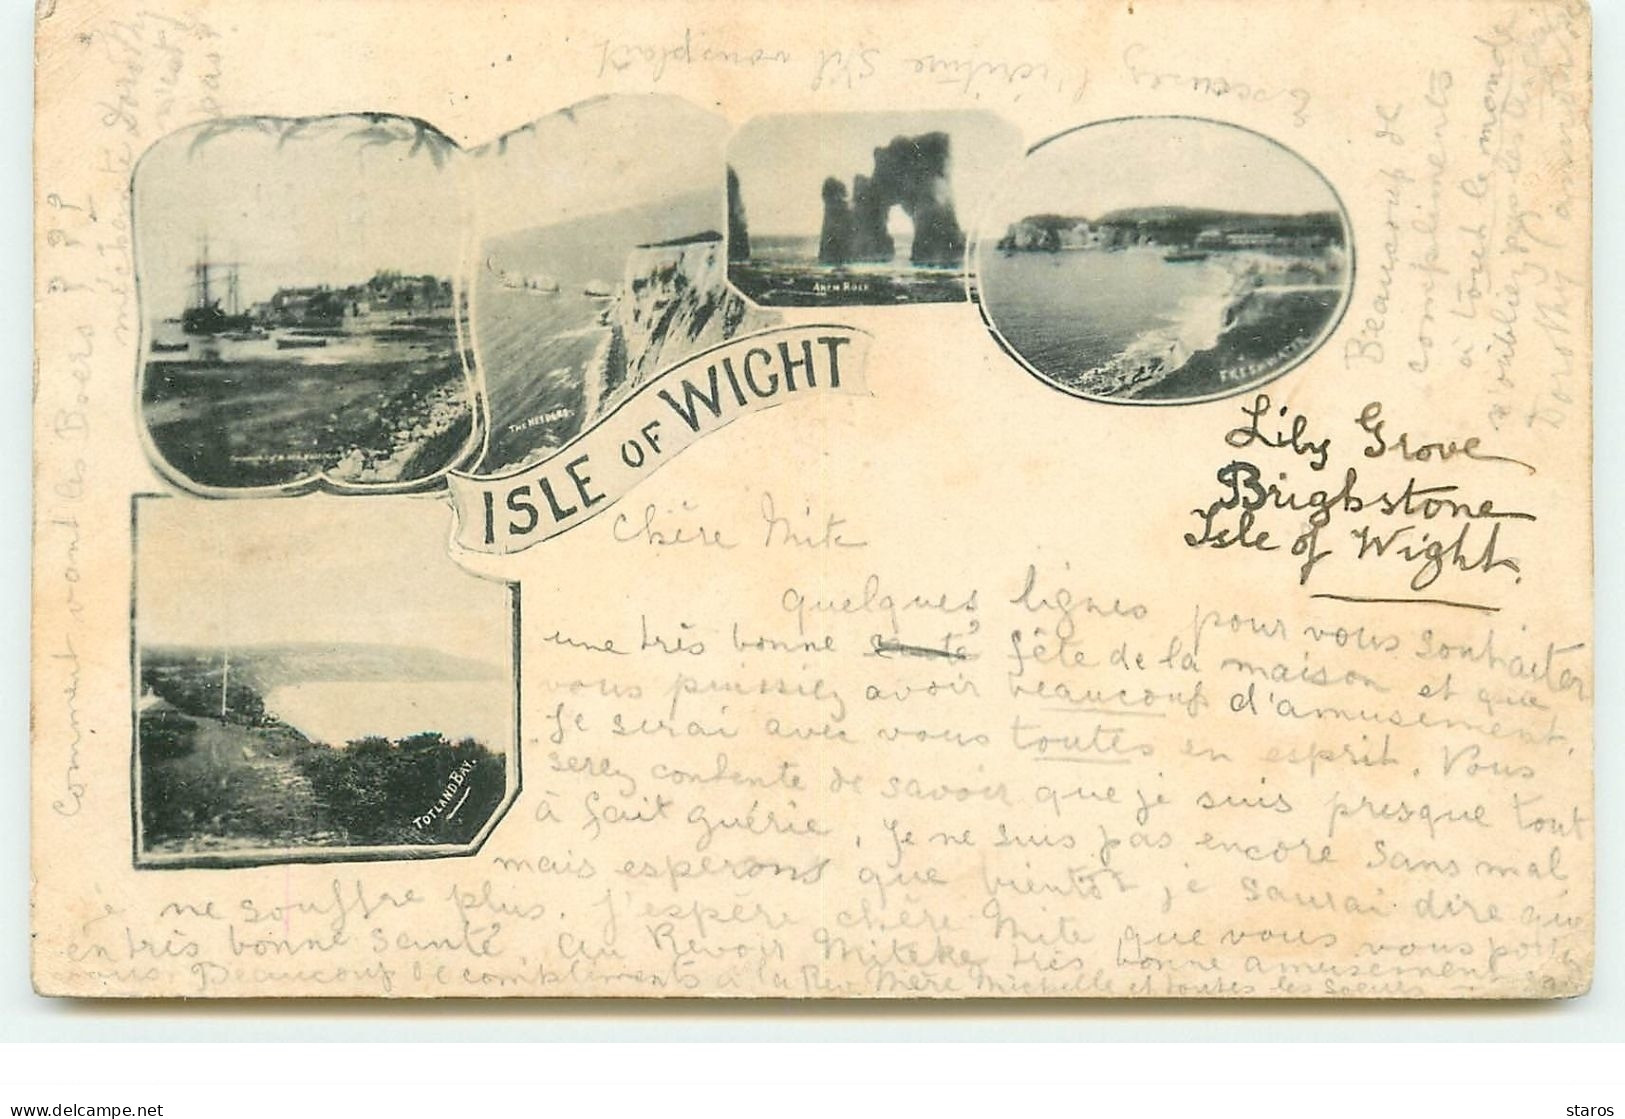 Excusez l'écriture s'il vous plaît
ARCH ROCK
FRESHWATER
THE NEEDLES
ISLE OF WIGHT
TOTLAND BAY.
Lily Grove
Brighstone
Isle of Wight.
Chère Mite
quelques lignes pour vous souhaiter
une très bonne santé fête de la maison et que
vous puissiez avoir beaucoup d'amusement.
Je serai avec vous toutes en esprit. Vous
serez contente de savoir que je suis presque tout
à fait guérie. Je ne suis pas encore sans mal
mais espérons que bientôt je saurai dire que
je ne souffre plus. J'espère chère Mite que vous vous portez
en très bonne santé. Au Revoir Miteke très bonne amusement
vous. Beaucoup de compliments à la Rev. Mère Michelle et toutes les Soeurs
Beaucoup de
compliments
à tout le monde
n'oubliez pas
Dorothy
Comment vont les Boers ? ? ?
méchante Dorothy
n'est
pas ?
delcampe.net
staros